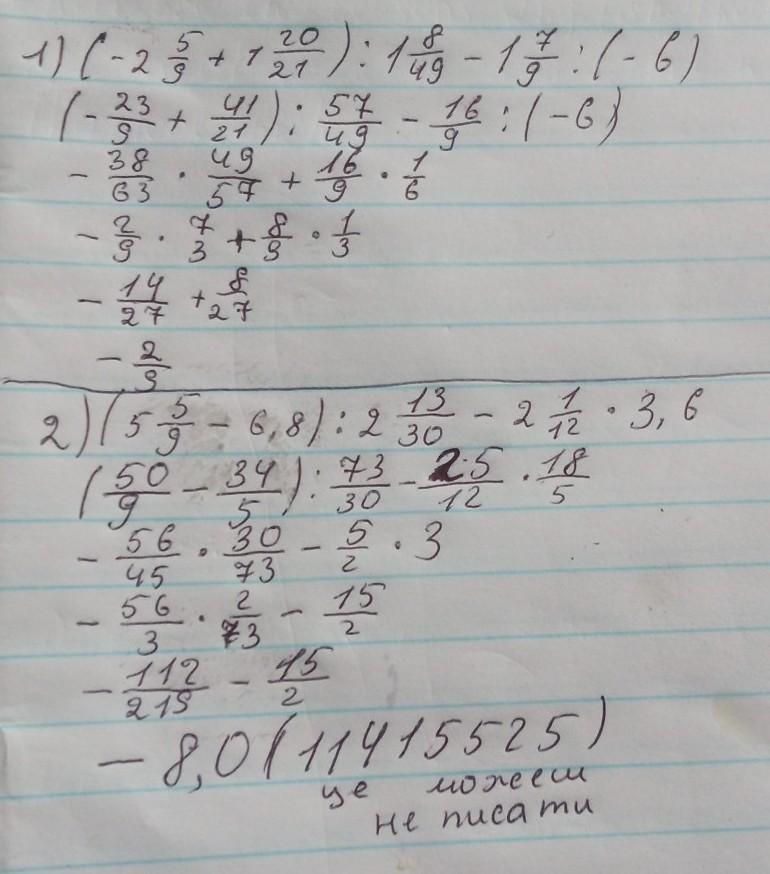 1) (-2 5/9 + 1 20/21) : 1 8/49 - 1 7/9 : (-6)
(-23/9 + 41/21) : 57/49 - 16/9 : (-6)
-38/63 · 49/57 + 16/9 · 1/6
-2/9 · 7/3 + 8/9 · 1/3
-14/27 + 8/27
-2/9
2) (5 5/9 - 6,8) : 2 13/30 - 2 1/12 · 3,6
(50/9 - 34/5) : 73/30 - 25/12 · 18/5
-56/45 · 30/73 - 5/2 · 3
-56/3 · 2/73 - 15/2
-112/219 - 15/2
-8,0(11415525)
це можеш
не писати